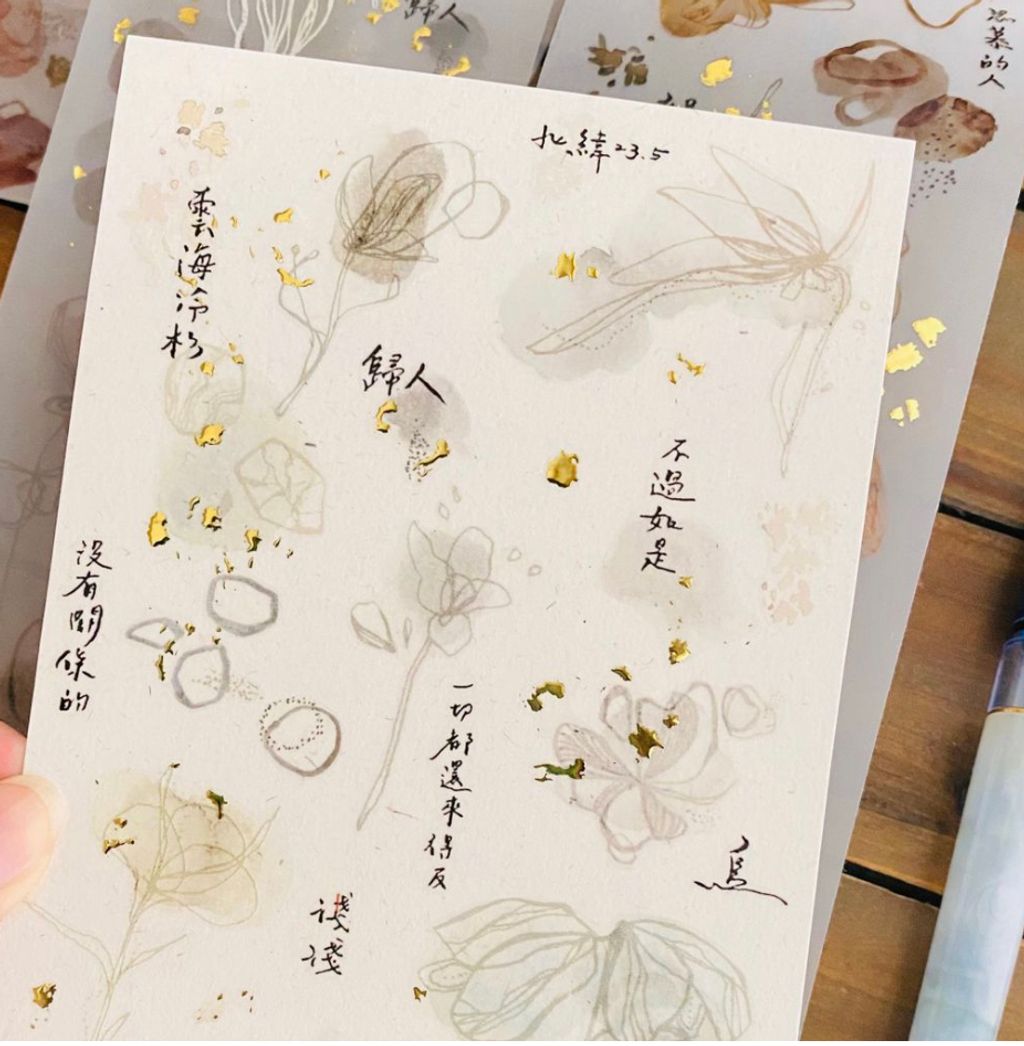 歸人
慕的人
北緯23.5
雲海冷杉
歸人
不過如是
沒有關係的
一切都還來得及
淺淺